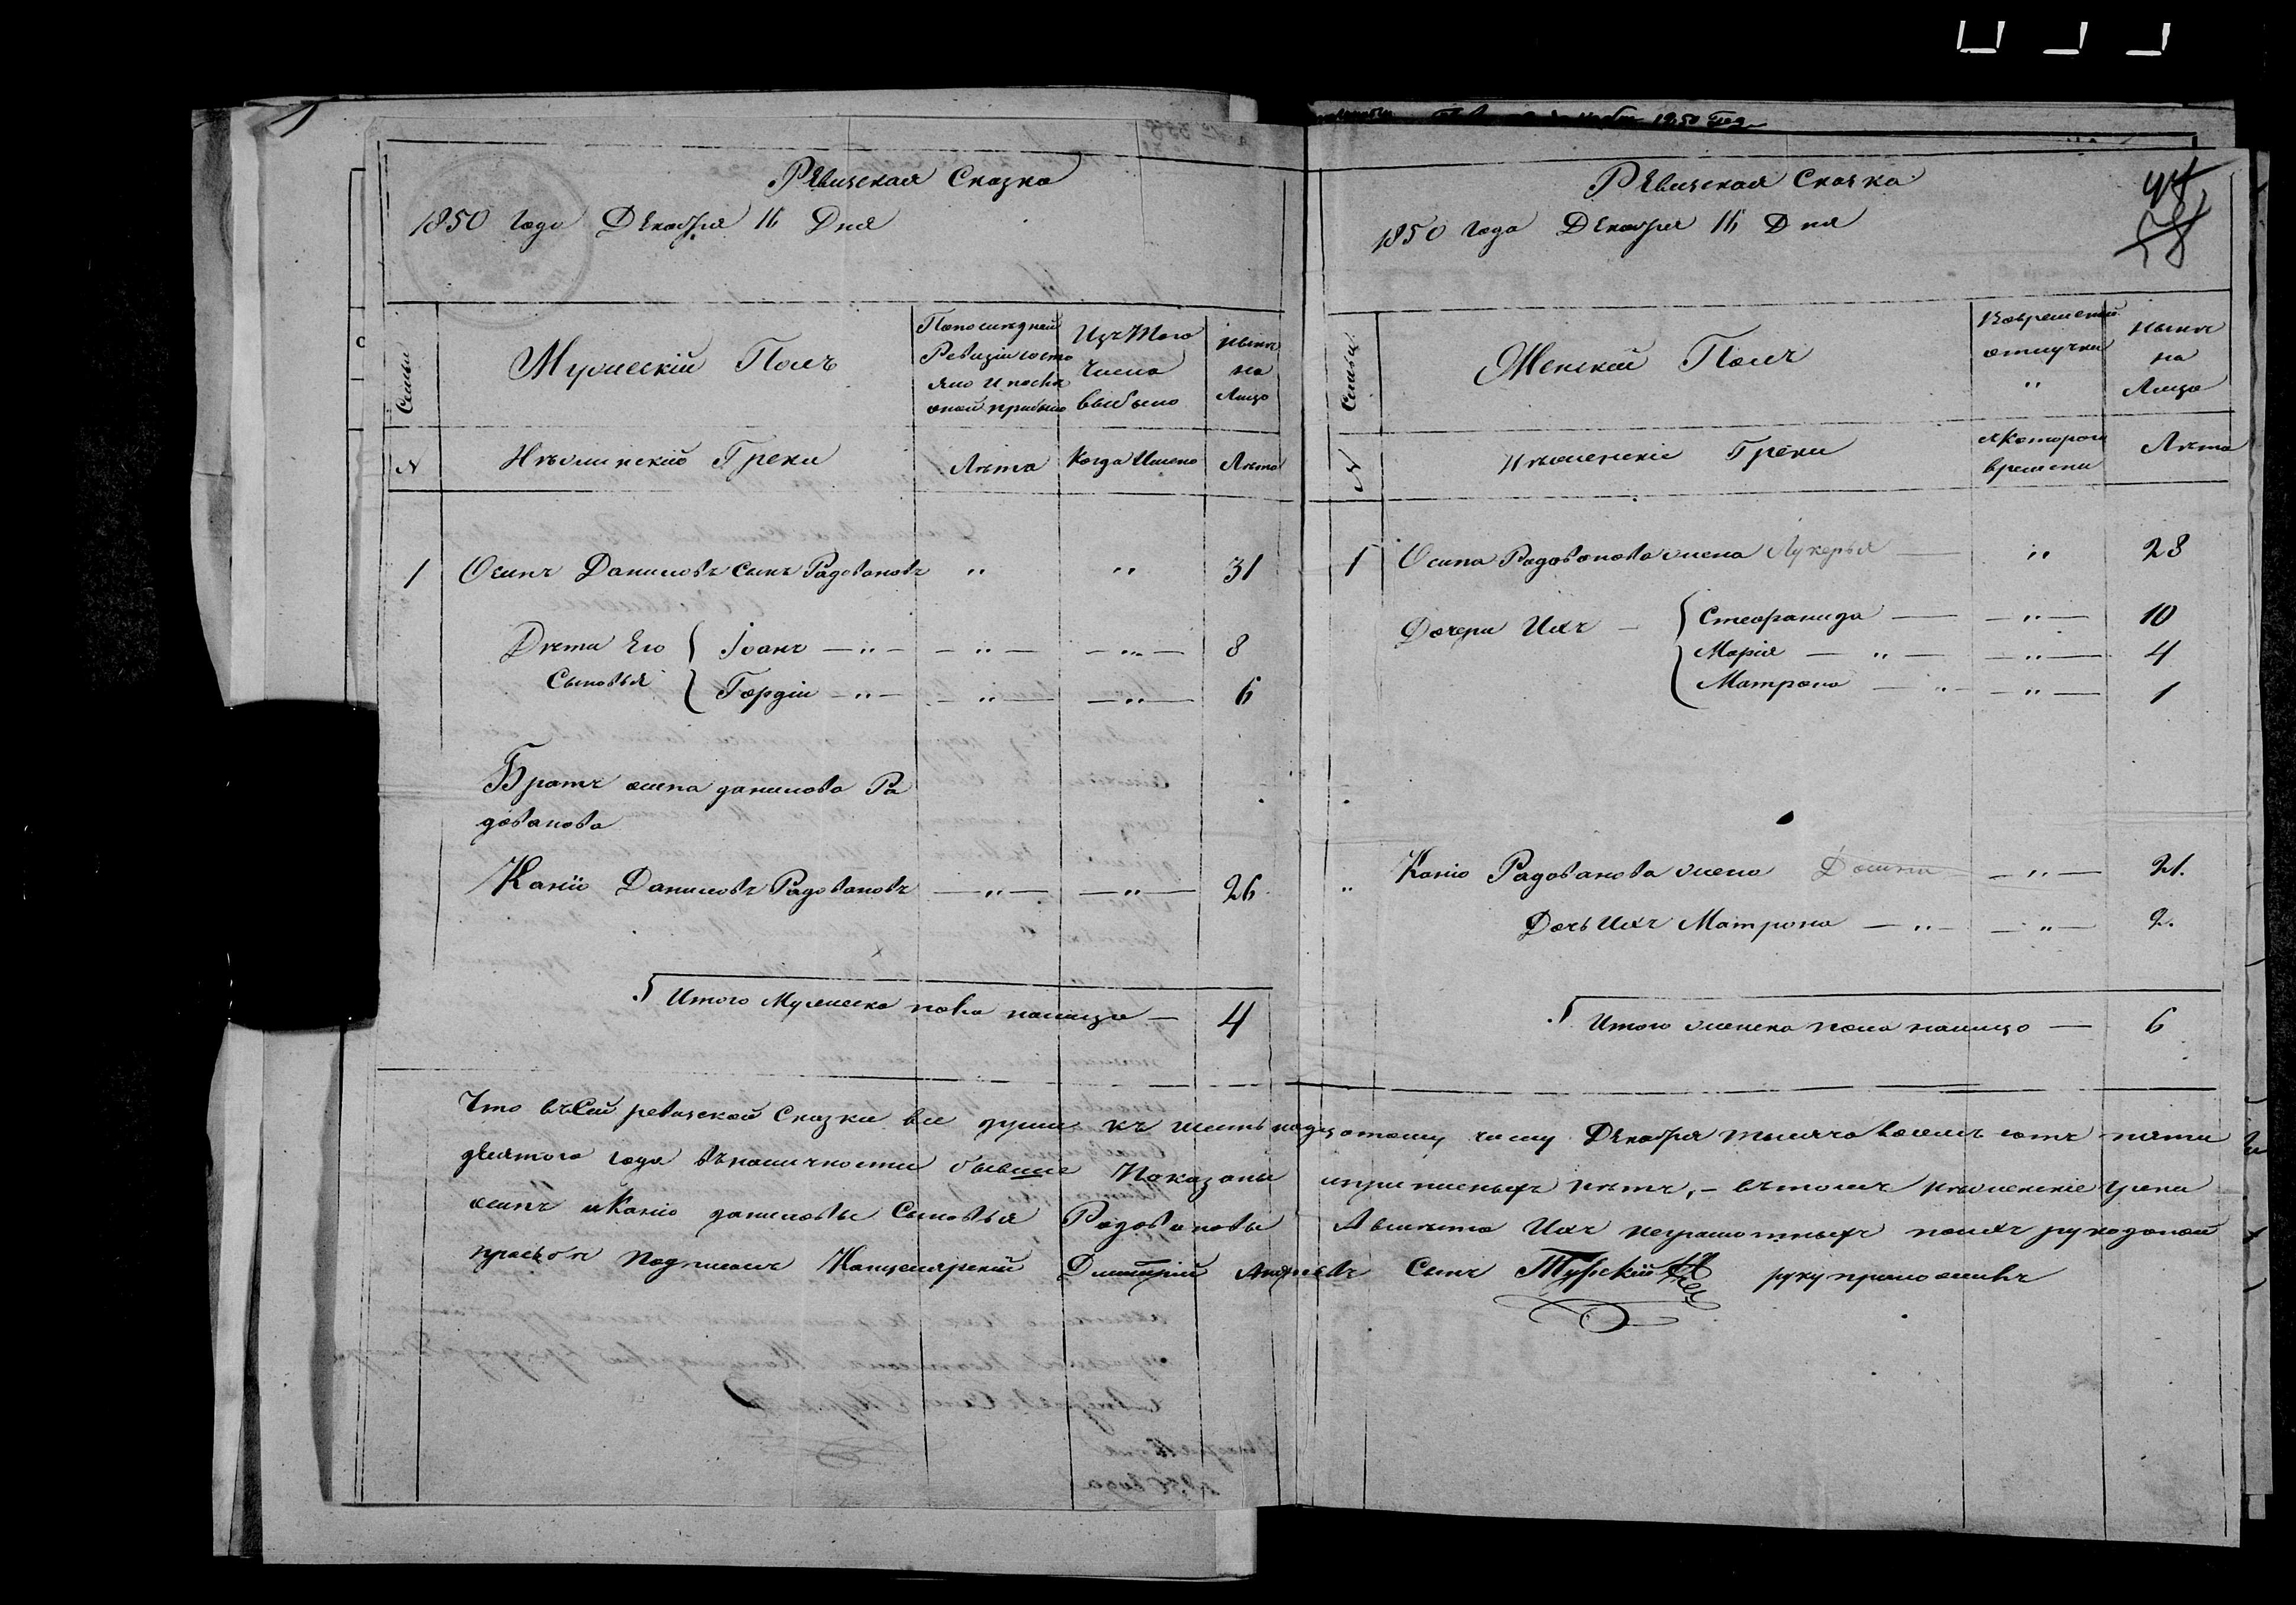 Ревизская Сказка
1850 года Декабря 16 Дня
Семьи
Мужескій Полъ
По последней Ревизіи состо
яло и после оной прибыло
Изъ того числа выбыло
ныне на Лицо
N
Нежинскіе Греки
Лета
Когда Имено
Лета
1 Осипъ Даниловъ сынъ Радовановъ " " 31
Дети Его Іванъ — " — — " — — " — 8
Сыновья Гордій — " — — " — — " — 6
Братъ осипа данилова Ра
дованова
Каніо Даниловъ Радовановъ — " — — " — 26
Итого Мужеска пола налицо — 4
Ревизская Сказка
1850 года Декабря 16 Дня
Семьи
Женскій Полъ
Во временной отлучки
"
ныне на Лицо
N
Нежинскіе Греки
с Которого времени
Лета
1 Осипа Радованова жена Лукерья — " 28
Дочери Ихъ — Стефанида — — " — 10
Марія — " — — " — 4
Матрона — " — — " — 1
" Каніо Радованова жена — " — 21.
Дочь Ихъ Матрона — " — — " — 2.
Итого женска пола налицо — 6
Что въ Сей ревизской Сказки все души къ шестьнадцатому числу Декабря тысяча восемь сотъ пяти
десятого года въ наличности бывшие Показаны и прописныхъ нетъ, — въ томъ нежинскіе греки
осипъ и Каніо даниловы Сыновья Радовановы А вместо Ихъ неграмотныхъ по ихъ рукоданой
прозьбе подписалъ Канцелярскій Дмитрій Андреевъ Сынъ руку приложилъ